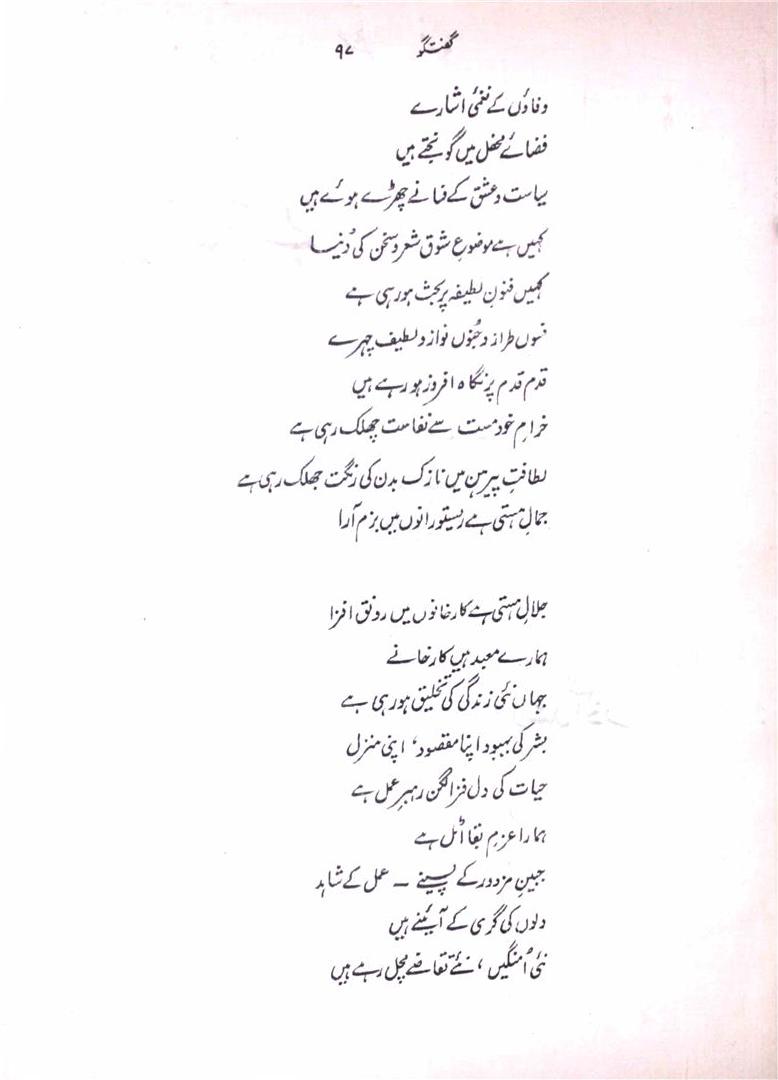 گفتگو ۹۷
وفاؤں کے نغمئی اشارے
فضائے محفل میں گونجتے ہیں
سیاست و عشق کے فسانے چھڑے ہوئے ہیں
کہیں ہے موضوعِ شوق شعر و سخن کی دُنیا
کہیں فنونِ لطیفہ پر بحث ہو رہی ہے
فسوں طراز و جُنوں نواز و لطیف چہرے
قدم قدم پر نگاہ افروز ہو رہے ہیں
خرامِ خود مست سے نفاست چھلک رہی ہے
لطافتِ پیرہن میں نازک بدن کی رنگت جھلک رہی ہے
جمالِ ہستی ہے ریستورانوں میں بزم آرا
جلالِ ہستی ہے کارخانوں میں رونق افزا
ہمارے معبد ہیں کارخانے
جہاں نئی زندگی کی تخلیق ہو رہی ہے
بشر کی بہبود اپنا مقصود، اپنی منزل
حیات کی دل فزا لگن رہبرِ عمل ہے
ہمارا عزمِ بقا اٹل ہے
جبینِ مزدور کے پسینے ــ عمل کے شاہد
دلوں کی گرمی کے آئینے ہیں
نئی اُمنگیں، نئے تقاضے مچل رہے ہیں